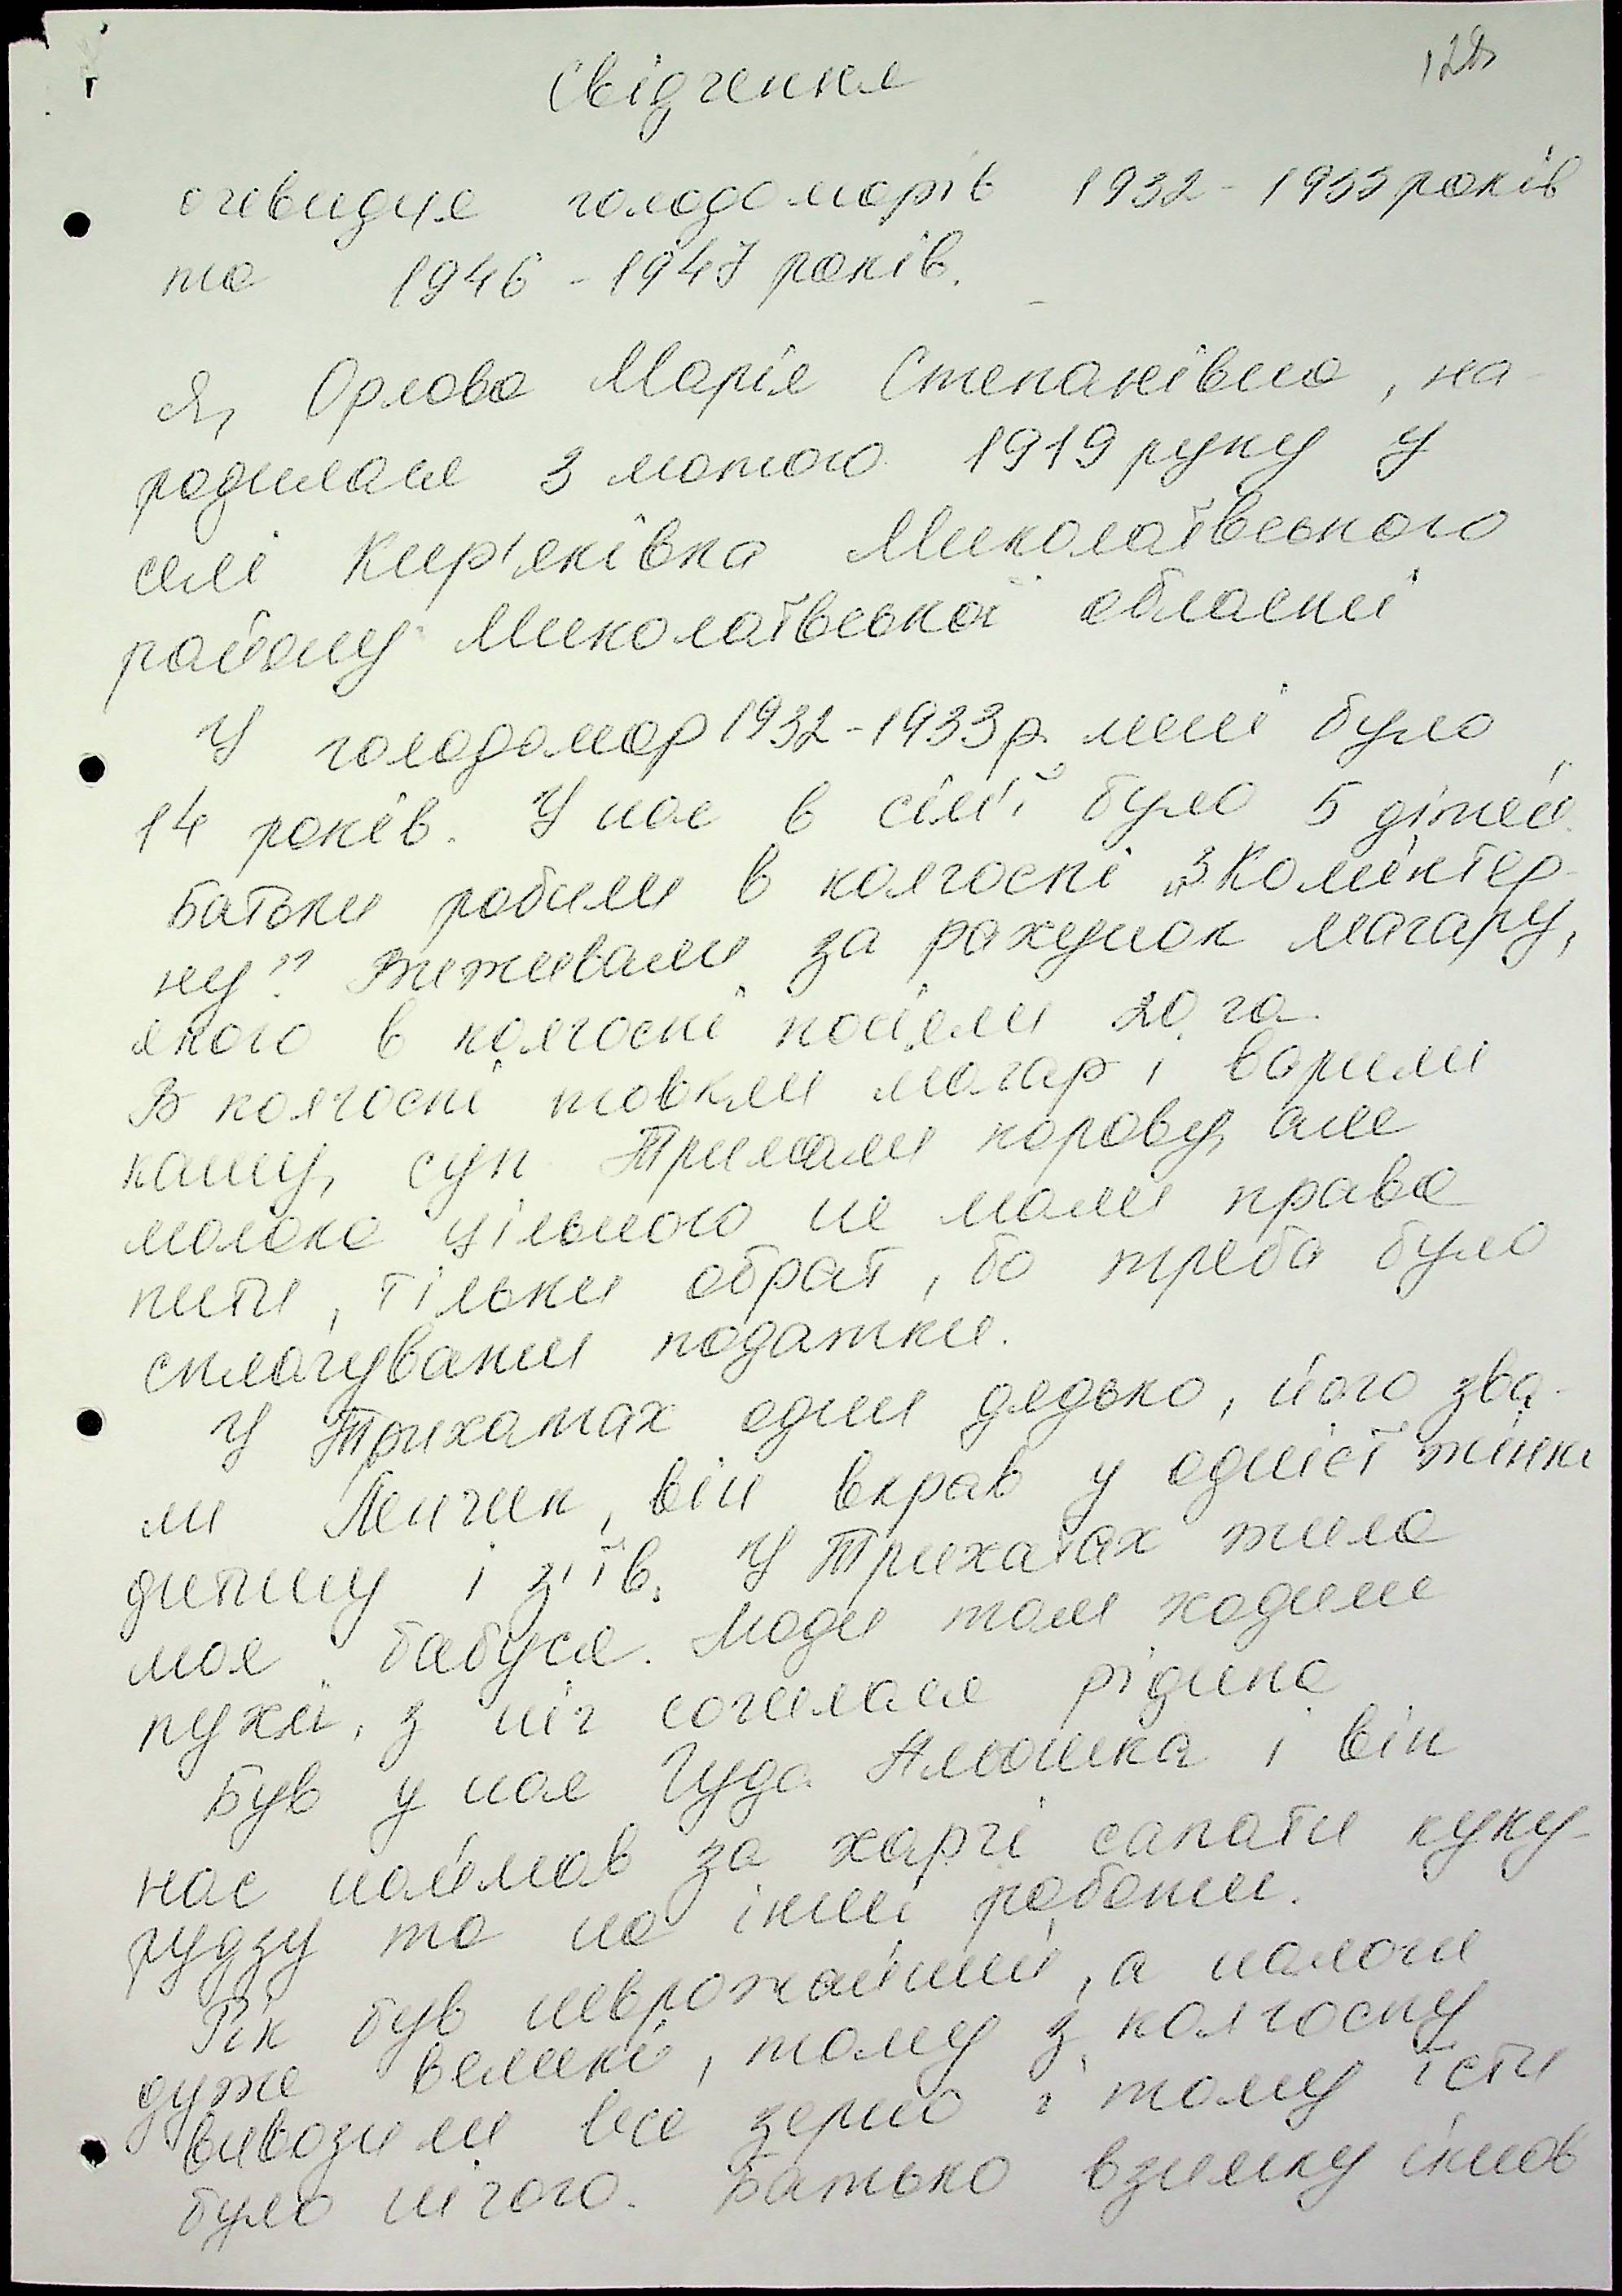 128
Свідчення
очевидця голодоморів 1932-1933 років
та 1946-1947 років.
Я, Орлова Марія Степанівна, на-
родилася 3 лютого 1919 руку у
селі Кир'яківка Миколаївського
району Миколаївської області
У голодомор 1932-1933 р. мені було
14 років. У нас в сім'ї було 5 дітей.
Батьки робили в колгоспі „3 Комінтер-
ну". Виживали за рахунок могару,
якого в колгоспі посіяли 20 га.
В колгоспі товкли могар і варили
кашу, суп. Тримали корову, але
молоко цільного не мали права
пити, тільки обрат, бо треба було
сплачувати податки.
У Трихатах один дядько, його зва-
ли Пенчик, він вкрав у однієї жінки
дитину і з'їв. У Трихатах жила
моя бабуся. Люди там ходили
пухлі, з ніг сочилася рідина
Був у нас Гуда Альошка і він
нас наймав за харчі сапати куку-
рудзу та на інші роботи.
Рік був неврожайний, а налоги
дуже великі, тому з колгоспу
вивозили все зерно і тому їсти
було нічого. Батько взимку ішов